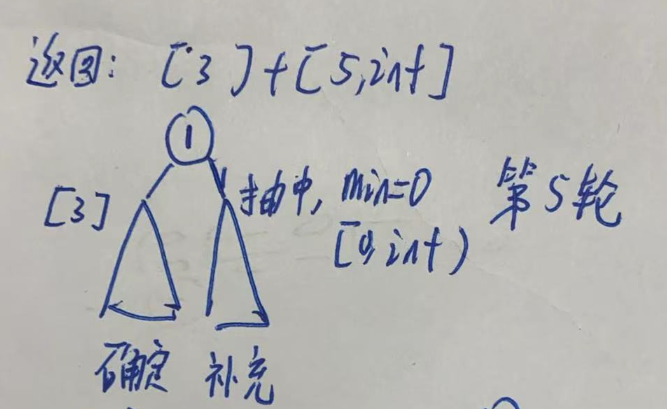 返回: [3]+[5,inf]
1
[3] 抽中, min=0 第5轮
[0,inf)
确定 补充